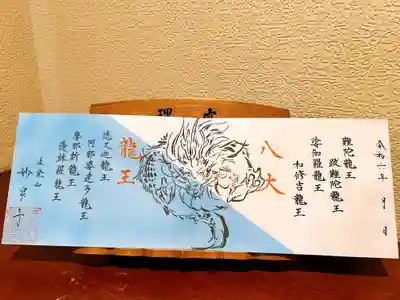 令和六年 月 日
難陀龍王
跋難陀龍王
娑加羅龍王
和修吉龍王
八大
龍王
徳叉迦龍王
阿那婆達多龍王
摩那斯龍王
優鉢羅龍王
法覚山
妙泉寺